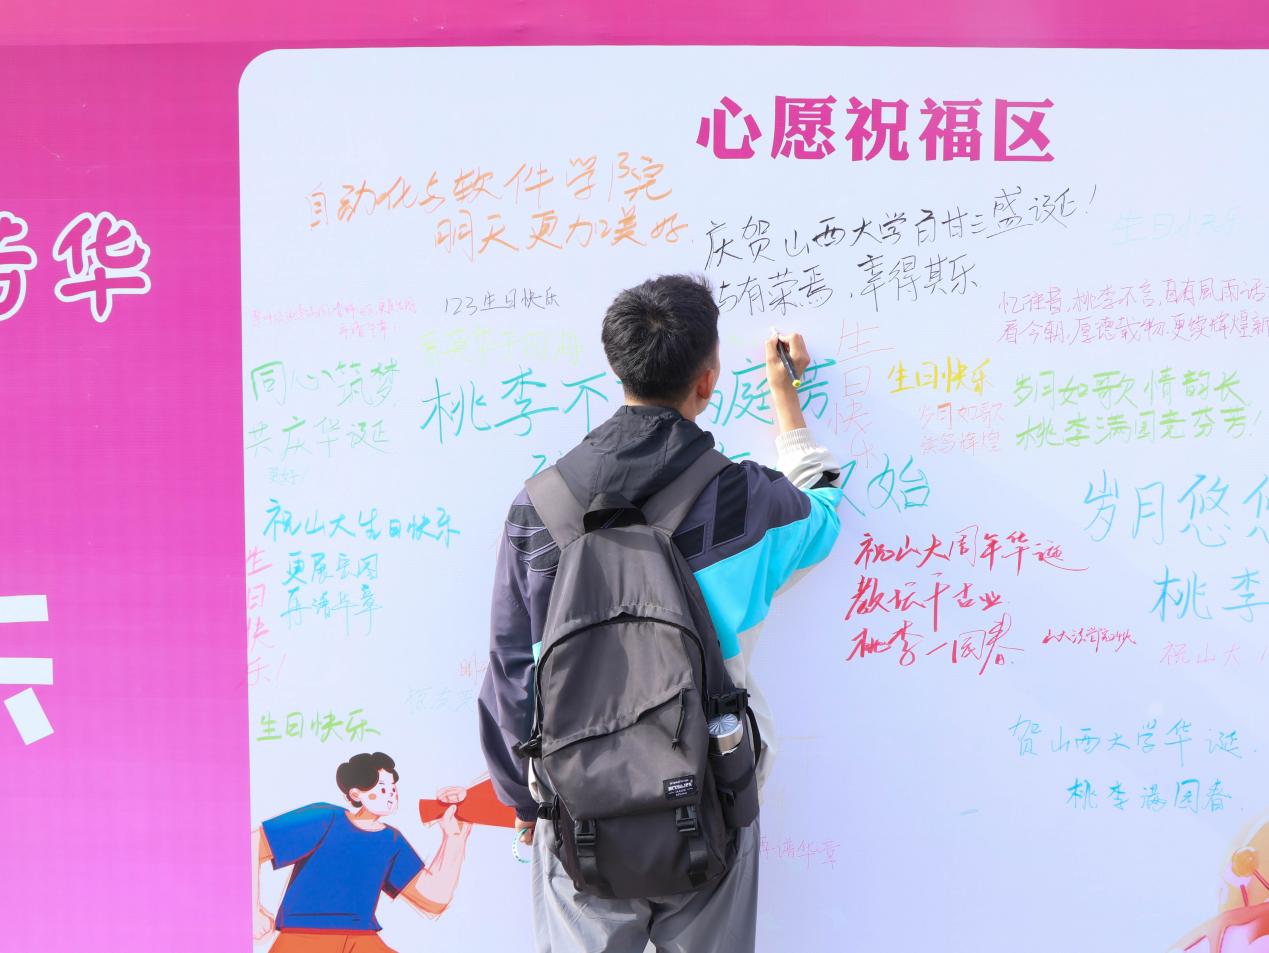 心愿祝福区
华
自动化与软件学院
明天更加美好
庆贺山西大学百廿三盛诞！
有荣焉，幸得其乐
生日快乐
123生日快乐
忆往昔，桃李不言，自有風雨话
看今朝，厚德载物，更续辉煌新
同心筑梦
共庆华诞
桃李不
庭芳
生日快乐
生日快乐
岁月如歌
岁月如歌情韵长
桃李满园竞芬芳！
始
祝山大生日快乐
更展宏图
再谱华章
生日快乐！
祝山大周年华诞
教坛千古业
桃李一园春
岁月悠
桃李
祝山大
生日快乐
贺山西大学华诞
桃李满园春
谱华章